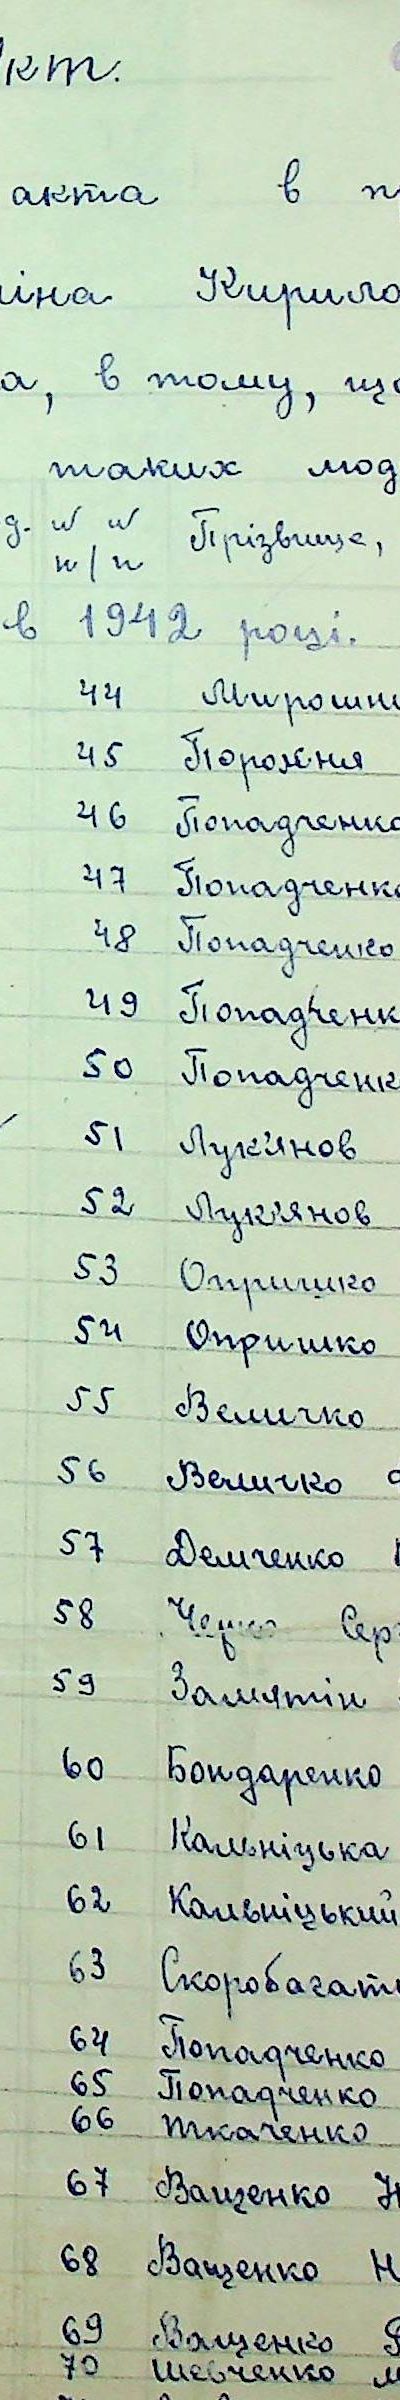 кт.
акта в п
іна Кирило
а, в тому, що
таких мод
д. № № Прізвище,
п/п
в 1942 році.
44 Мирошни
45 Порожня
46 Попадченко
47 Попадченко
48 Попадченко
49 Попадченк
50 Попадченк
51 Лук'янов
52 Лук'янов
53 Опришко
54 Опришко
55 Величко
56 Величко
57 Демченко
58 Сер
59 Замятін
60 Бондаренко
61 Кальніцька
62 Кальніцький
63 Скоробагат
64 Попадченко
65 Попадченко
66 Ткаченко
67 Ващенко Н
68 Ващенко Н
69 Ващенко
70 Шевченко М